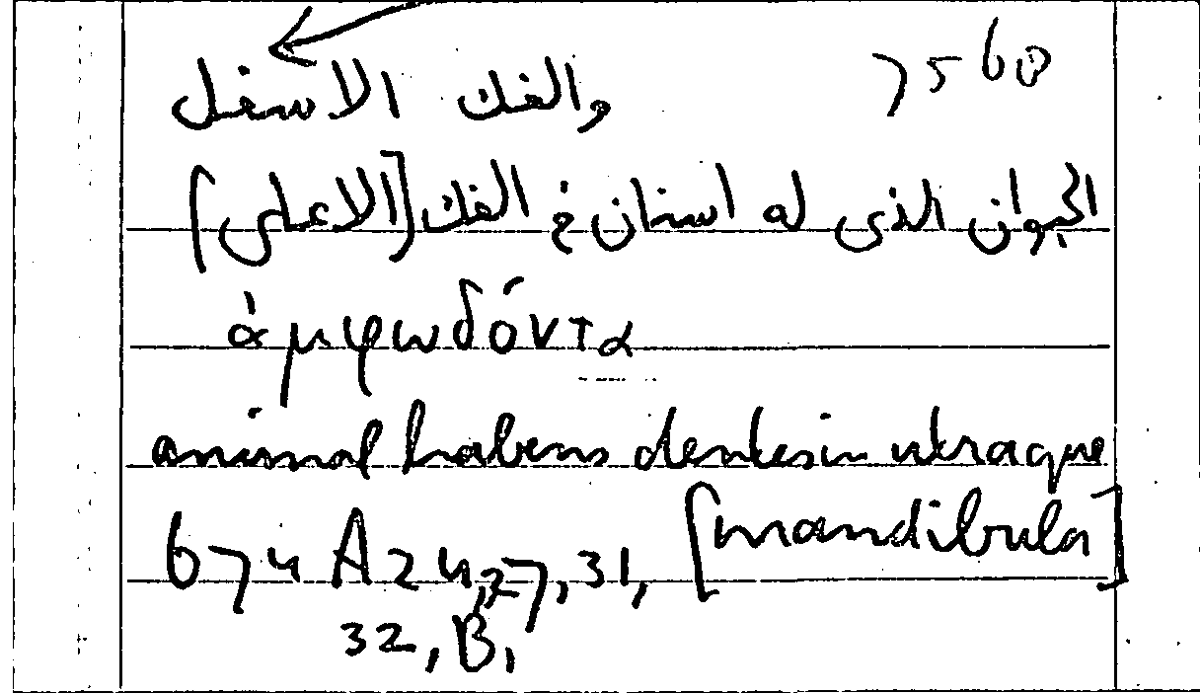 والفك الاسفل 7560
الحيوان الذى له اسنان فى الفك [الاعلى]
ἀμφωδόντα
animal habens dentes in utraque
[mandibula]
674 A 24, 27, 31,
32, B,